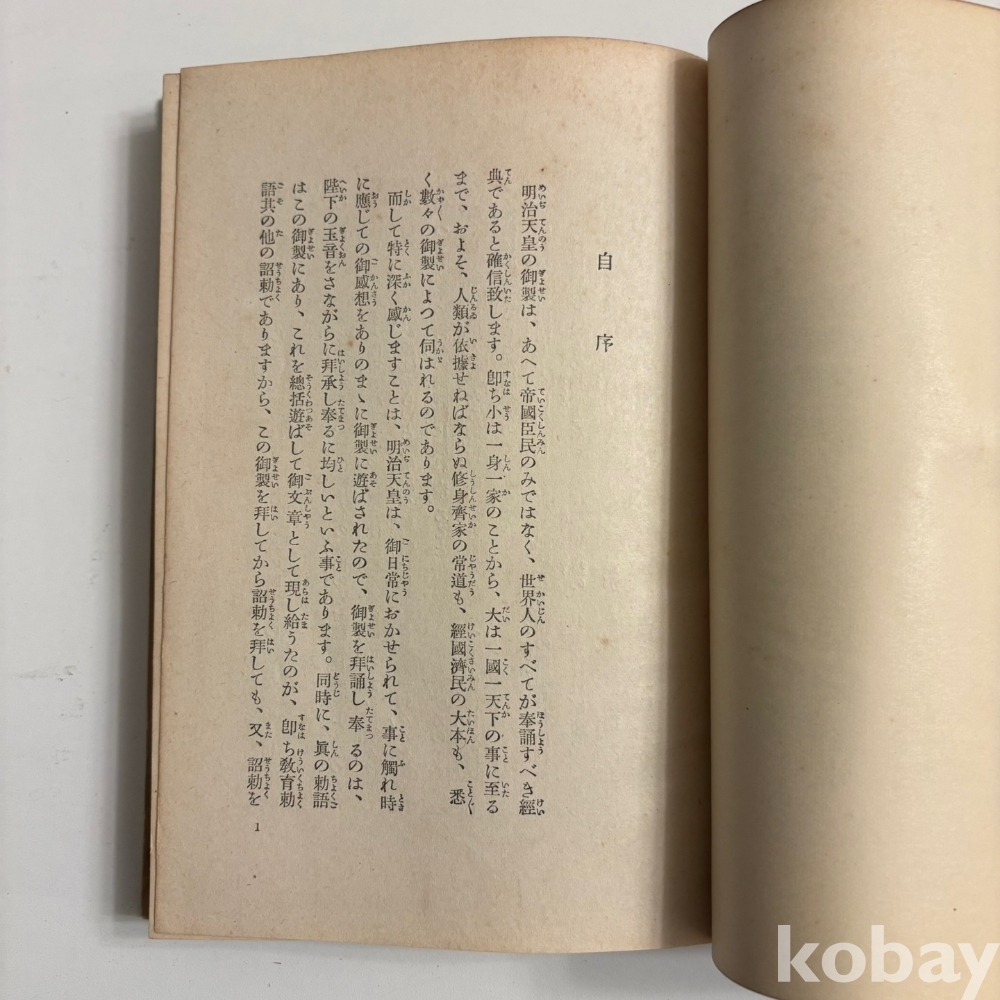 自序
明治天皇の御製は、あへて帝國臣民のみではなく、世界人のすべてが奉誦すべき經
典であると確信致します。卽ち小は一身一家のことから、大は一國一天下の事に至る
まで、およそ、人類が依據せねばならぬ修身齊家の常道も、經國濟民の大本も、悉
く數々の御製によつて伺はれるのであります。
而して特に深く感じますことは、明治天皇は、御日常におかせられて、事に觸れ時
に應じての御感想をありのまゝに御製に遊ばされたので、御製を拜誦し奉るのは、
陛下の玉音をさながらに拜承し奉るに均しいといふ事であります。同時に、眞の勅語
はこの御製にあり、これを總括遊ばして御文章として現し給うたのが、卽ち敎育勅
語其の他の詔勅でありますから、この御製を拜してから詔勅を拜しても、又、詔勅を
1
kobay